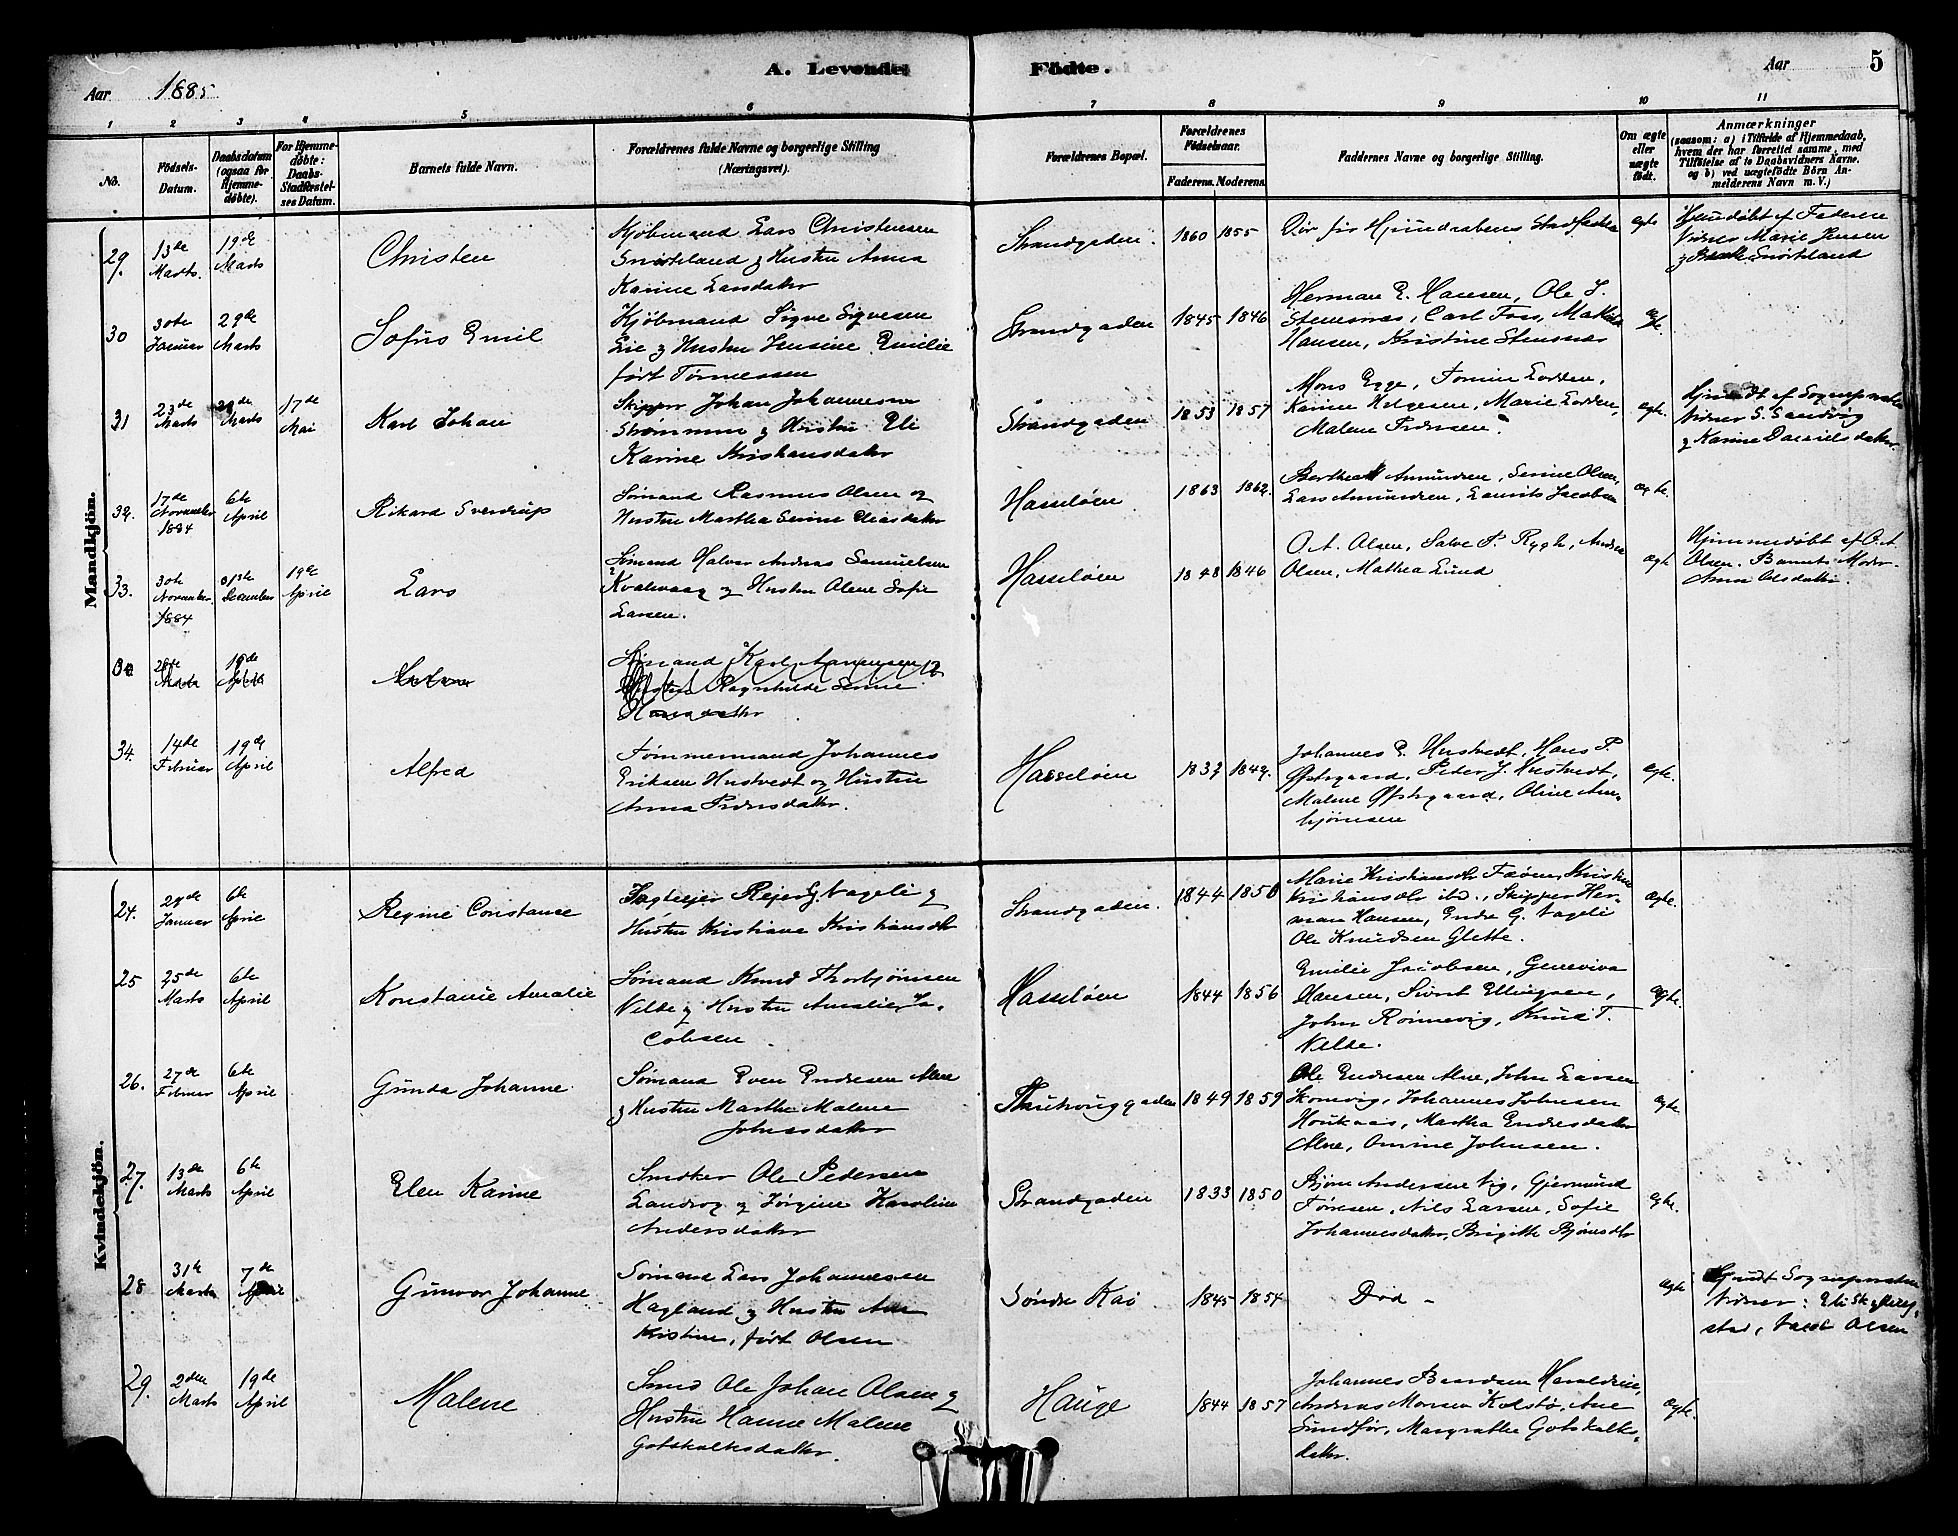 A. Levende Födte.
5
Aar 1885
Aar
1 2 3 4 5 6 7 8 9 10 11
No.
Födsels-Datum.
Daabsdatum (ogsaa for Hjemmedøbte).
For Hjemmedøbte: Daabs-Stadfæstelses Datum.
Barnets fulde Navn.
Forældrenes fulde Navne og borgerlige Stilling (Næringsvei).
Forældrenes Bopæl.
Forældrenes Fødselsaar.
Faderens. Moderens.
Faddernes Navne og borgerlige Stilling.
Om ægte eller uægte født.
Anmærkninger
(saasom: a) i Tilfælde af Hjemmedaab, hvem der har forrettet samme, med Tilföielse af to Daabsvidners Navne, og b) ved uægtefödte Börn Anmelderens Navn m. V.)
Mandkjön.
29. 13de Marts. 19de Marts
Christen
Kjøbmand Lars Christensen
Snørteland og Hustru Anna
Karine Larsdatter
Strandgaden. 1860 1855
Død før Hjemdaabens Stadfæstelse
ægte
Hjemdøbt af Faderen
Vidner Marie Jensen
30 30te Januar 29de Marts
Sofus Emil
Kjøbmand Sigve Sigvesen
Lie og Hustru Jensine Emilie
født Tørnessen
Strandgaden 1845 1846
Herman E. Hansen, Ole J.
Stensnæs, Carl Foss, Mathilde
Hansen, Kristine Stensnæs
ægte
31 23de Marts 29de Marts 17de Mai
Karl Johan
Skipper Johan Johannesen
Strømmen og Hustru Eli
Karine Kristiansdatter
Strandgaden 1853 1857
Mons Egge, Tomine Lodden,
Karine Helgesen, Marie Lodden,
Malene Pedersen.
ægte.
Hjemdt af Sognepræsten
Vidner S. Sandvig
og Karine Danielsdatter.
32. 17de November 1884 6te April
Rikard Sverdrup
Sømand Rasmus Olsen og
Hustru Martha Serine Eliasdatter
Hasseløen 1863 1862.
Berthea Amundsen, Serine Olsen,
Lars Amundsen, Laurits Jacobsen
ægte.
33. 30te November 1884 31te December 19de April
Lars
Sømand Halvor Andreas Samuelsen
Kvalevaag og Hustru Olene Sofie
Larsen.
Hasseløen 1848 1846
O. A. Olsen, Salve P. Rygh, Andrea
Olsen, Mathea Lund
ægte
Hjemmedøbt af O. A.
Olsen. Barnets Moder
Anna Olsdatter.
19de April
Sømand Karl Aanensen og
Hustru Ragnhilde Serine
Hansdatter
34. 14de Februar 19de April
Alfred
Tømmermand Johannes
Eriksen Hustvedt og Hustru
Anna Pedersdatter.
Hasseløen 1832 1842.
Johannes E. Hustvedt, Hans P.
Østegaard, Peter J. Hustvedt,
Malene Østegaard, Oline Am-
bjørnsen
ægte.
Kvindekjön.
24. 28de Januar 6te April
Regine Constance
Jagteejer Rejer G. Vageli og
Hustru Kristiane Kristiansdtr
Strandgaden. 1844 1850
Marie Kristiansdtr Fæøen, Kristine
Kristiansdtr ibd., Skipper Her-
man Hansen, Endre G. Vageli
Ole Knudsen Glette.
ægte.
25 25de Marts 6te April
Konstanse Amalie
Sømand Knud Thorbjørnsen
Velde og Hustru Amalie Ja-
cobsen
Hasseløen 1844 1856
Emilie Jacobsen, Geneviva
Hansen, Sivert Ellingsen,
John Rønnevig, Knud T.
Velde.
ægte.
26. 27de Februar 6te April
Gunda Johanne
Sømand Even Endresen Alne
og Hustru Marthe Malene
Johnsdatter
1849 1859
Ole Endresen Alne, John Larsen
Johannes Johnsen
Martha Endresdatter
Alne, Omine Johnsen.
ægte.
27. 13de Marts 6te April
Elen Karine
Snedker Ole Pedersen
Landrog og Jørgine Karoline
Andersdatter
Strandgaden 1833 1850
Bjørn Andersen Vig, Gjermund
Tøresen, Nils Larsen, Sofie
Johannesdatter, Brigitte Bjørnsdtr
ægte.
28 31te Marts 7de April
Gunvor Johanne
Sømand Lars Johannesen
Hagland og Hustru Ane
Kristine, født Olsen
Søndre Kai. 1845 1854
Død -
ægte
Hjemdt Sognepræsten
Vidner:
Olsen
29. 2den Marts 19de April
Malene
Smed Ole Johan Olsen og
Hustru Hanne Malene
Gotskalksdatter.
Hauge 1844 1857
Johannes Baardsen Haraldseie,
Andreas Monsen Kolstø, Ane
Sundfør, Margrethe Gotskalks-
datter.
ægte.